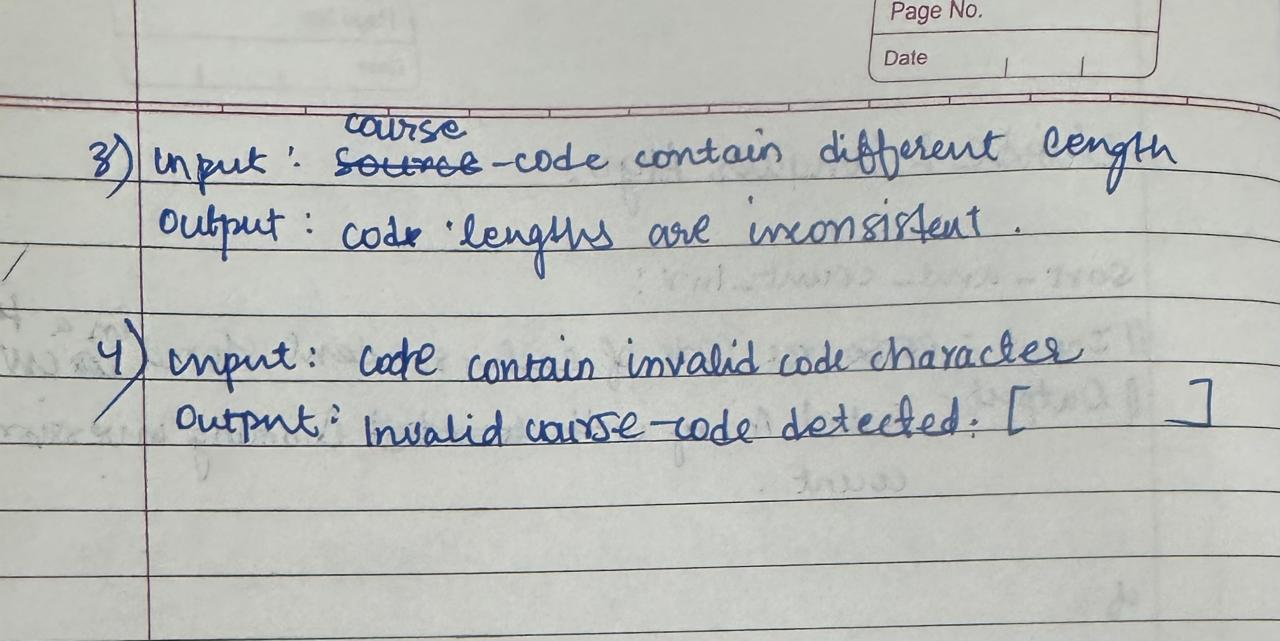 Page No.
Date
course
3) Input : source-code contain different length
Output : code lengths are inconsistent .
4) Input : code contain invalid code character
Output : Invalid course-code detected : [ ]